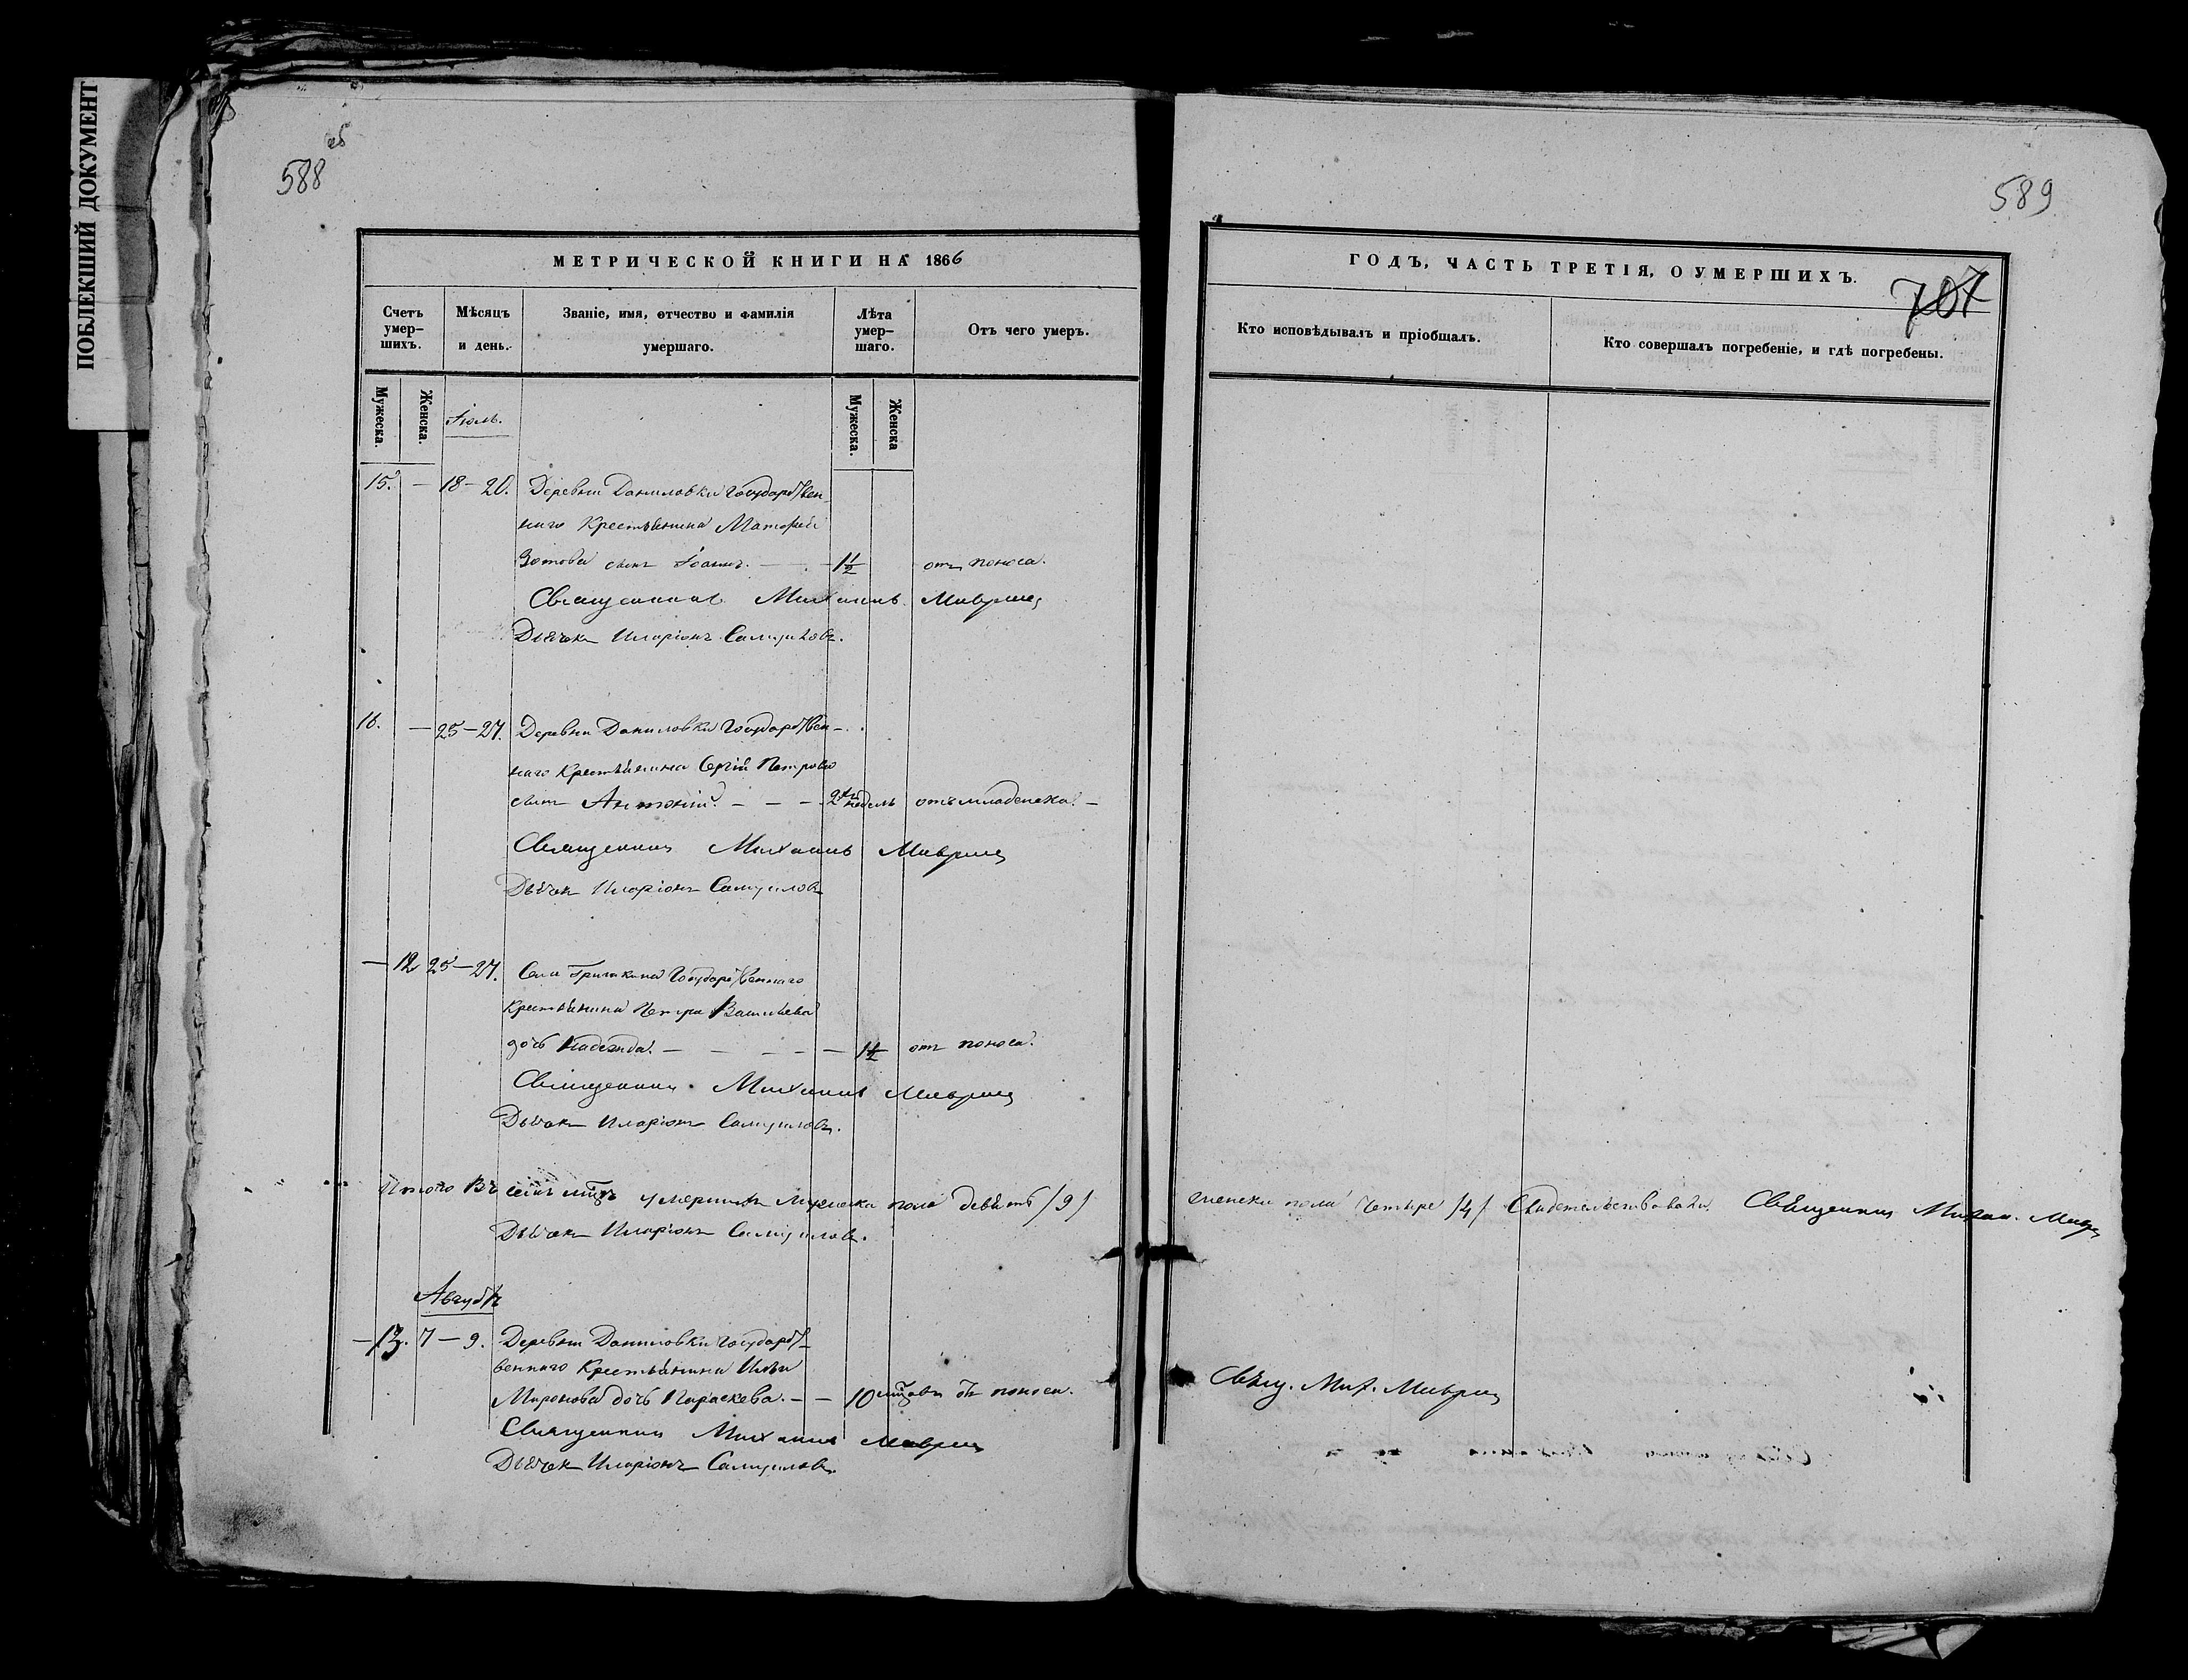 ПОБЛЕКШИЙ ДОКУМЕНТ
об
588
МЕТРИЧЕСКОЙ КНИГИ НА 1866
Счетъ умер-шихъ.
Мѣсяцъ и день.
Званіе, имя, отчество и фамилія умершаго.
Лѣта умер-шаго.
Отъ чего умеръ.
Мужеска.
Женска.
Мужеска.
Женска
Іюль.
15. — 18-20. Деревни Даниловки Государствен
наго Крестьянина Матфея
Зотова сынъ Іоаннъ. — 1½ отъ поноса.
Священникъ Михаилъ
Дьячокъ Иларіонъ Самуиловъ.
16. — 25-27. Деревни Даниловки Государствен-
наго Крестьянина Сергій Петрова
сынъ Антоній. — — — 2хъ недель отъ младенска. —
Священникъ Михаилъ
Дьячокъ Иларіонъ Самуиловъ
— 12 25-27. Села Государственнаго
Крестьянина Петра Васильева
дочь Надежда. — — — — — 1½ отъ поноса.
Священникъ Михаилъ
Дьячокъ Иларіонъ Самуиловъ.
Итого Въ семъ мцѣ умершихъ Мужеска пола девять /9/
Дьячокъ Иларіонъ Самуиловъ.
Августъ
— 13. 7-9. Деревни Даниловки Государст-
веннаго Крестьянина Ильи
Миронова дочь Параскева. — — 10 мцовъ отъ поноса.
Священникъ Михаилъ
Дьячокъ Иларіонъ Самуиловъ.
589
707
ГОДЪ, ЧАСТЬ ТРЕТІЯ, О УМЕРШИХЪ.
Кто исповѣдывалъ и пріобщалъ.
Кто совершалъ погребеніе, и гдѣ погребены.
женска пола Четыре /4/ Свидетельствовали Священникъ Михаи.
Свящ. Мих.